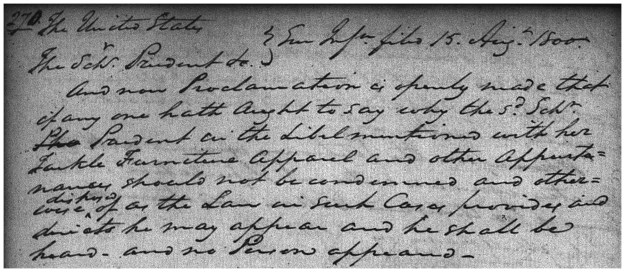 270. The United States
} Em Infn. filed 15. Augt. 1800.
The Schr. Prudent &c.
And now Proclamation is openly made that
if any one hath Aught to say why the sd. Schr.
Prudent in the Libel mentioned with her
Tackle Furniture Apparel and other Appurte=
nances should not be condemned and other=
wise disposed of as the Law in such Cases provides and
directs he may appear and he shall be
heard - and no Person appeared -